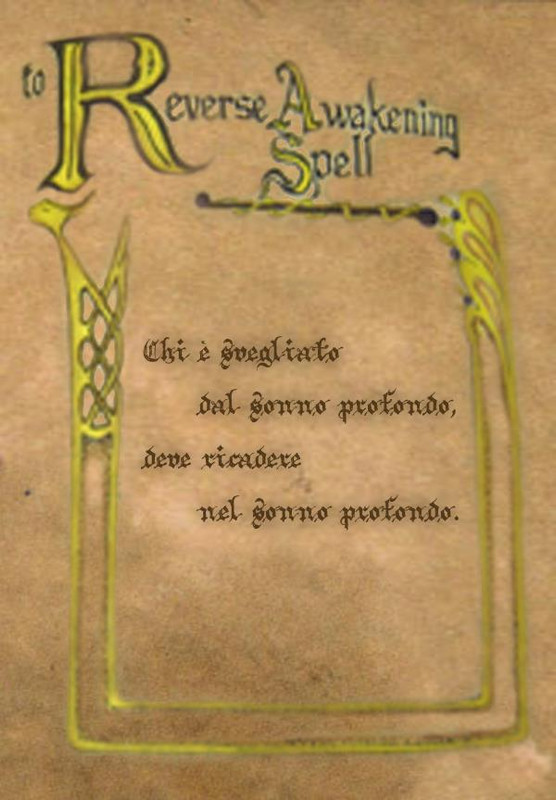 to Reverse Awakening
Spell
Chi è svegliato
dal sonno profondo,
deve ricadere
nel sonno profondo.